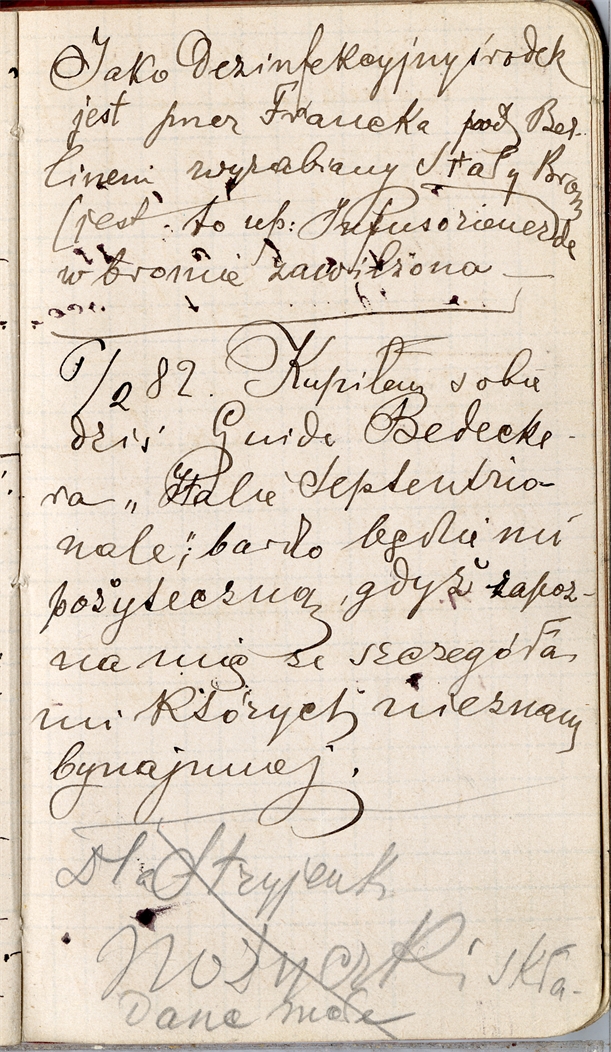 Jako Dezinfekcyjny środek
jest przez Francka pod Ber-
linem wyrabiany Stały Brom
(jest to np: Infusorienerde
w bromie zawilżona —
1/2 82. Kupiłem sobie
dziś Guide Bedecke-
ra „Italie Septentrio-
nale"; bardo będzie mi
pożyteczną, gdyż zapoz-
na mię ze szczegóła-
mi których nieznam
bynajmniej.
Dla Stryjenki
Nożyczki skła-
dane małe